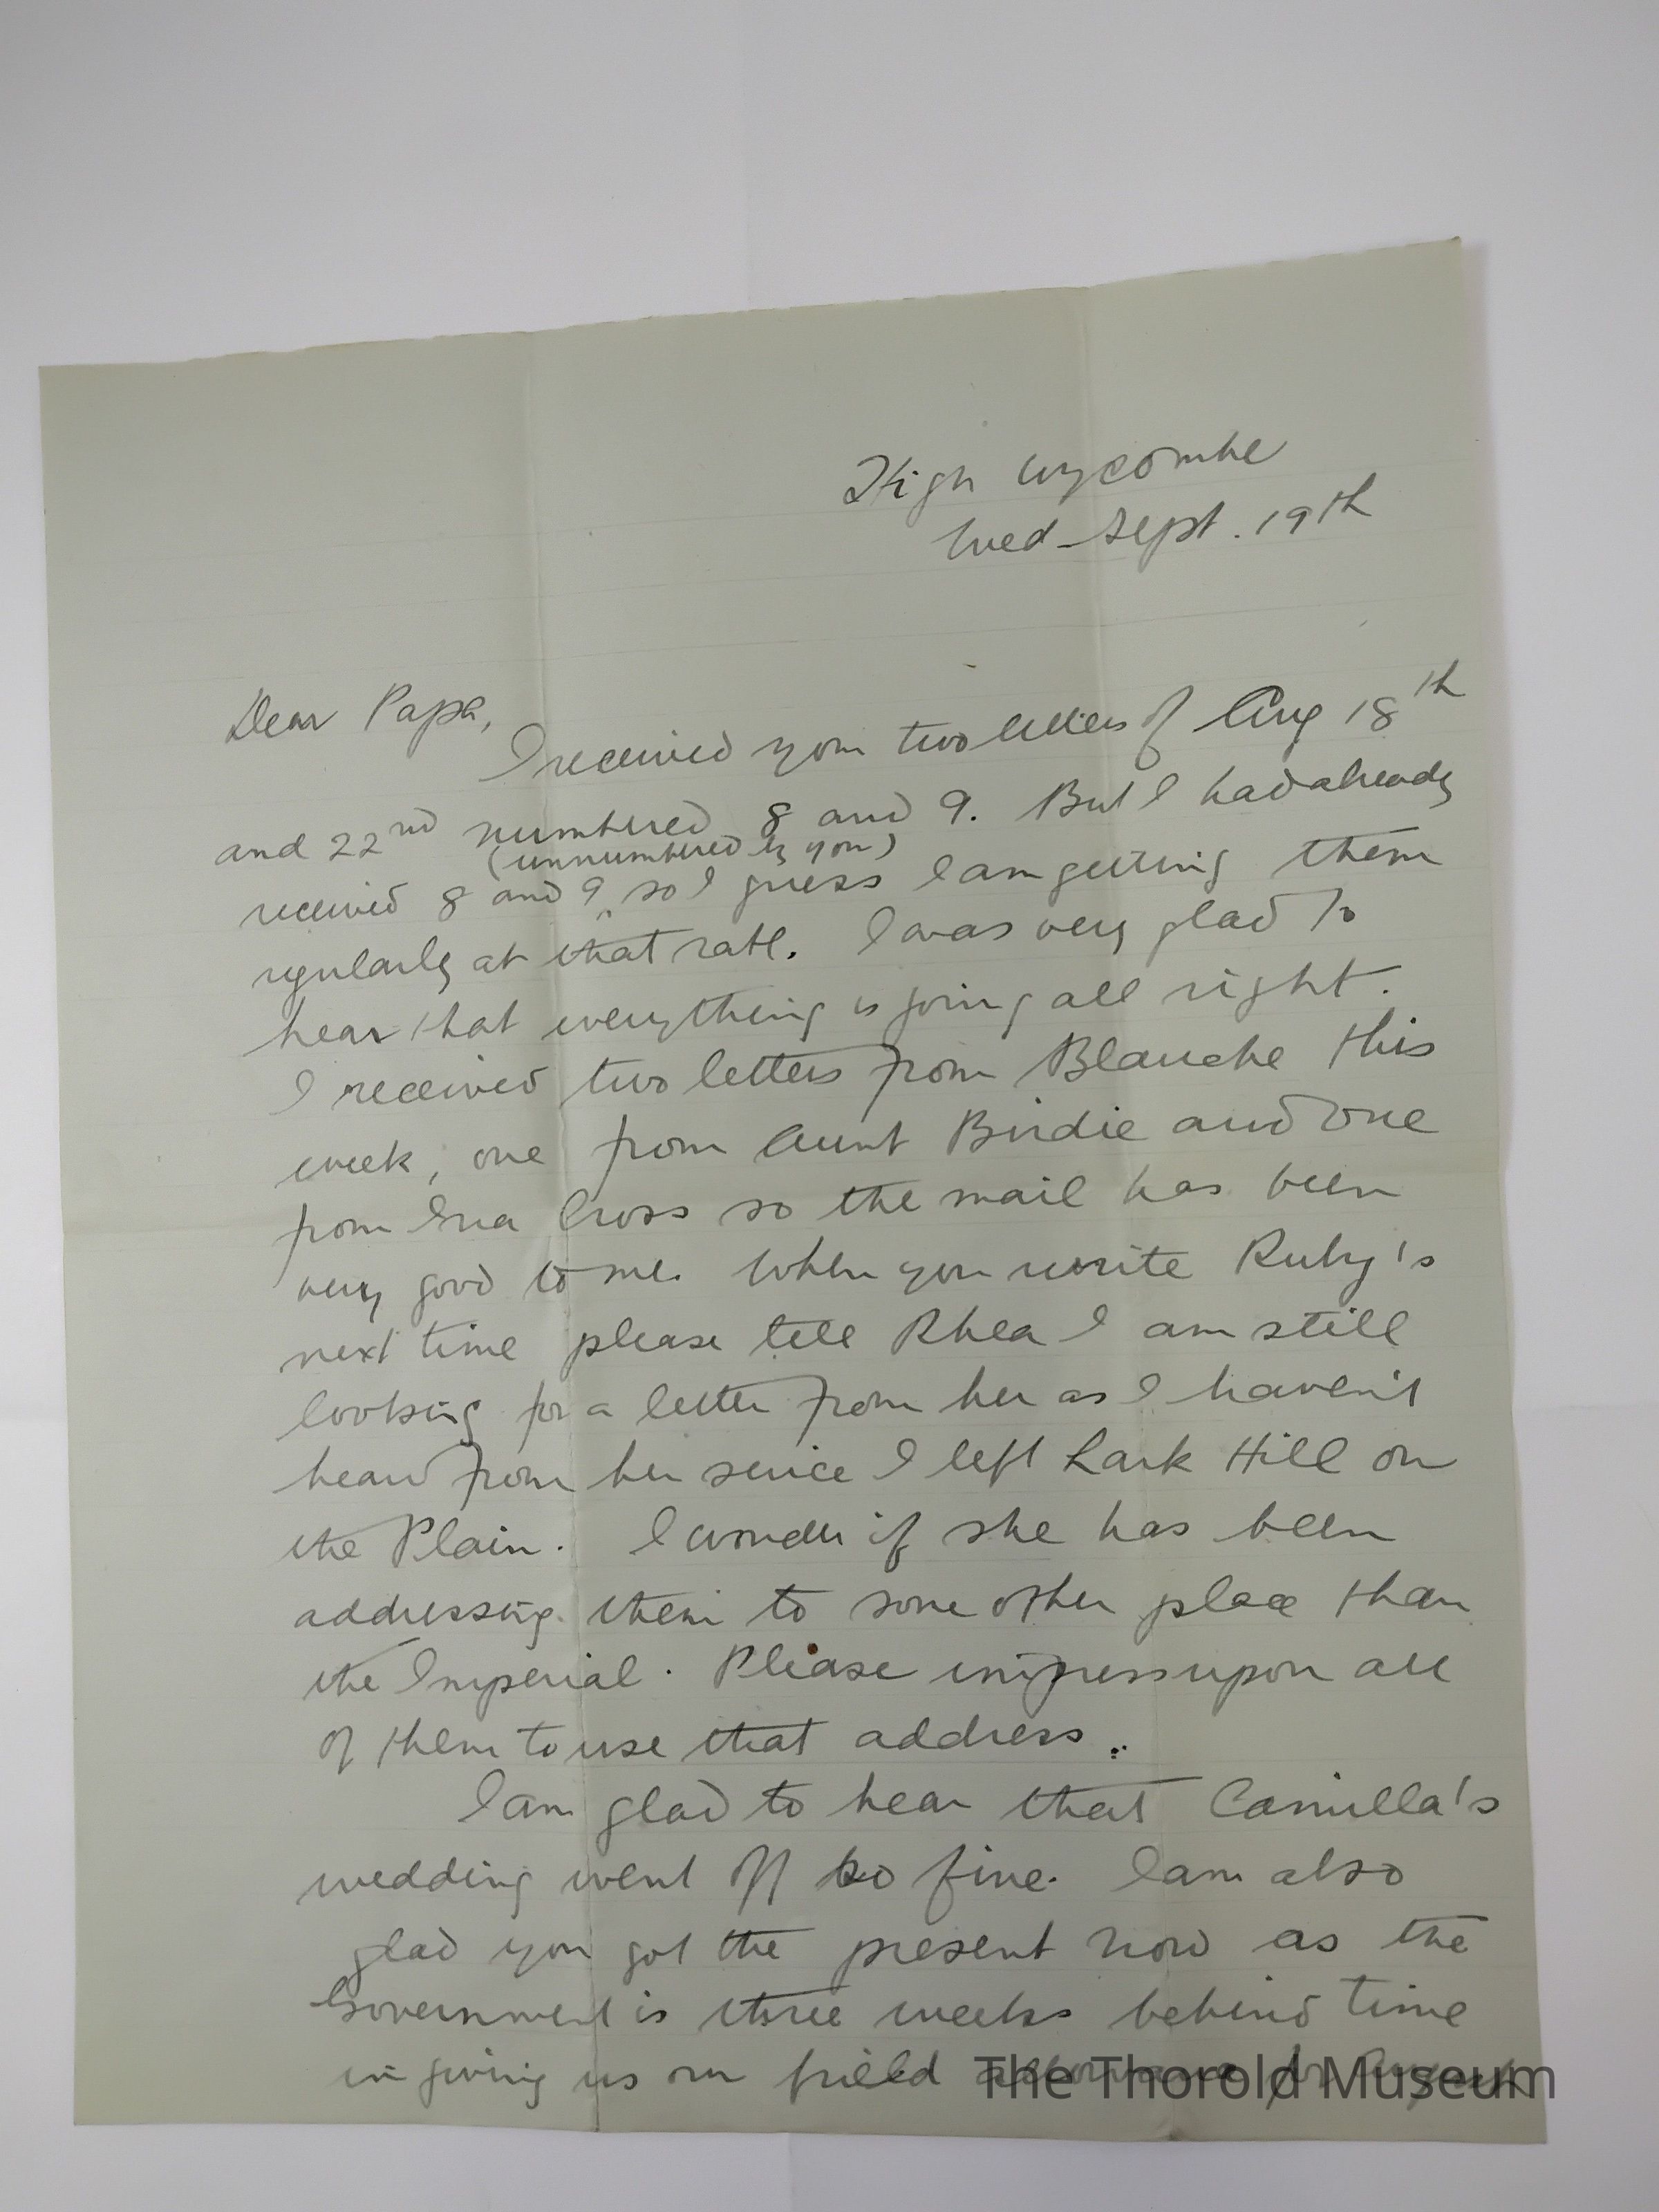 High Wycombe
Wed - Sept. 19th
Dear Papa,
I received your two letters of Aug 18th
and 22nd numbered 8 and 9. But I had already
(unnumbered by you)
received 8 and 9 so I guess I am getting them
regularly at that rate. I was very glad to
hear that everything is going all right.
I received two letters from Blanche this
week, one from Aunt Birdie and one
from Cross so the mail has been
very good to me. When you write Ruby's
next time please tell Rhea I am still
looking for a letter from her as I haven't
heard from her since I left Lark Hill on
the Plain. I wonder if she has been
addressing them to some other place than
the Imperial. Please impress upon all
of them to use that address.
I am glad to hear that Camilla's
wedding went off so fine. I am also
glad you got the present now as the
Government is three weeks behind time
in giving us our field allowance for August
The Thorold Museum